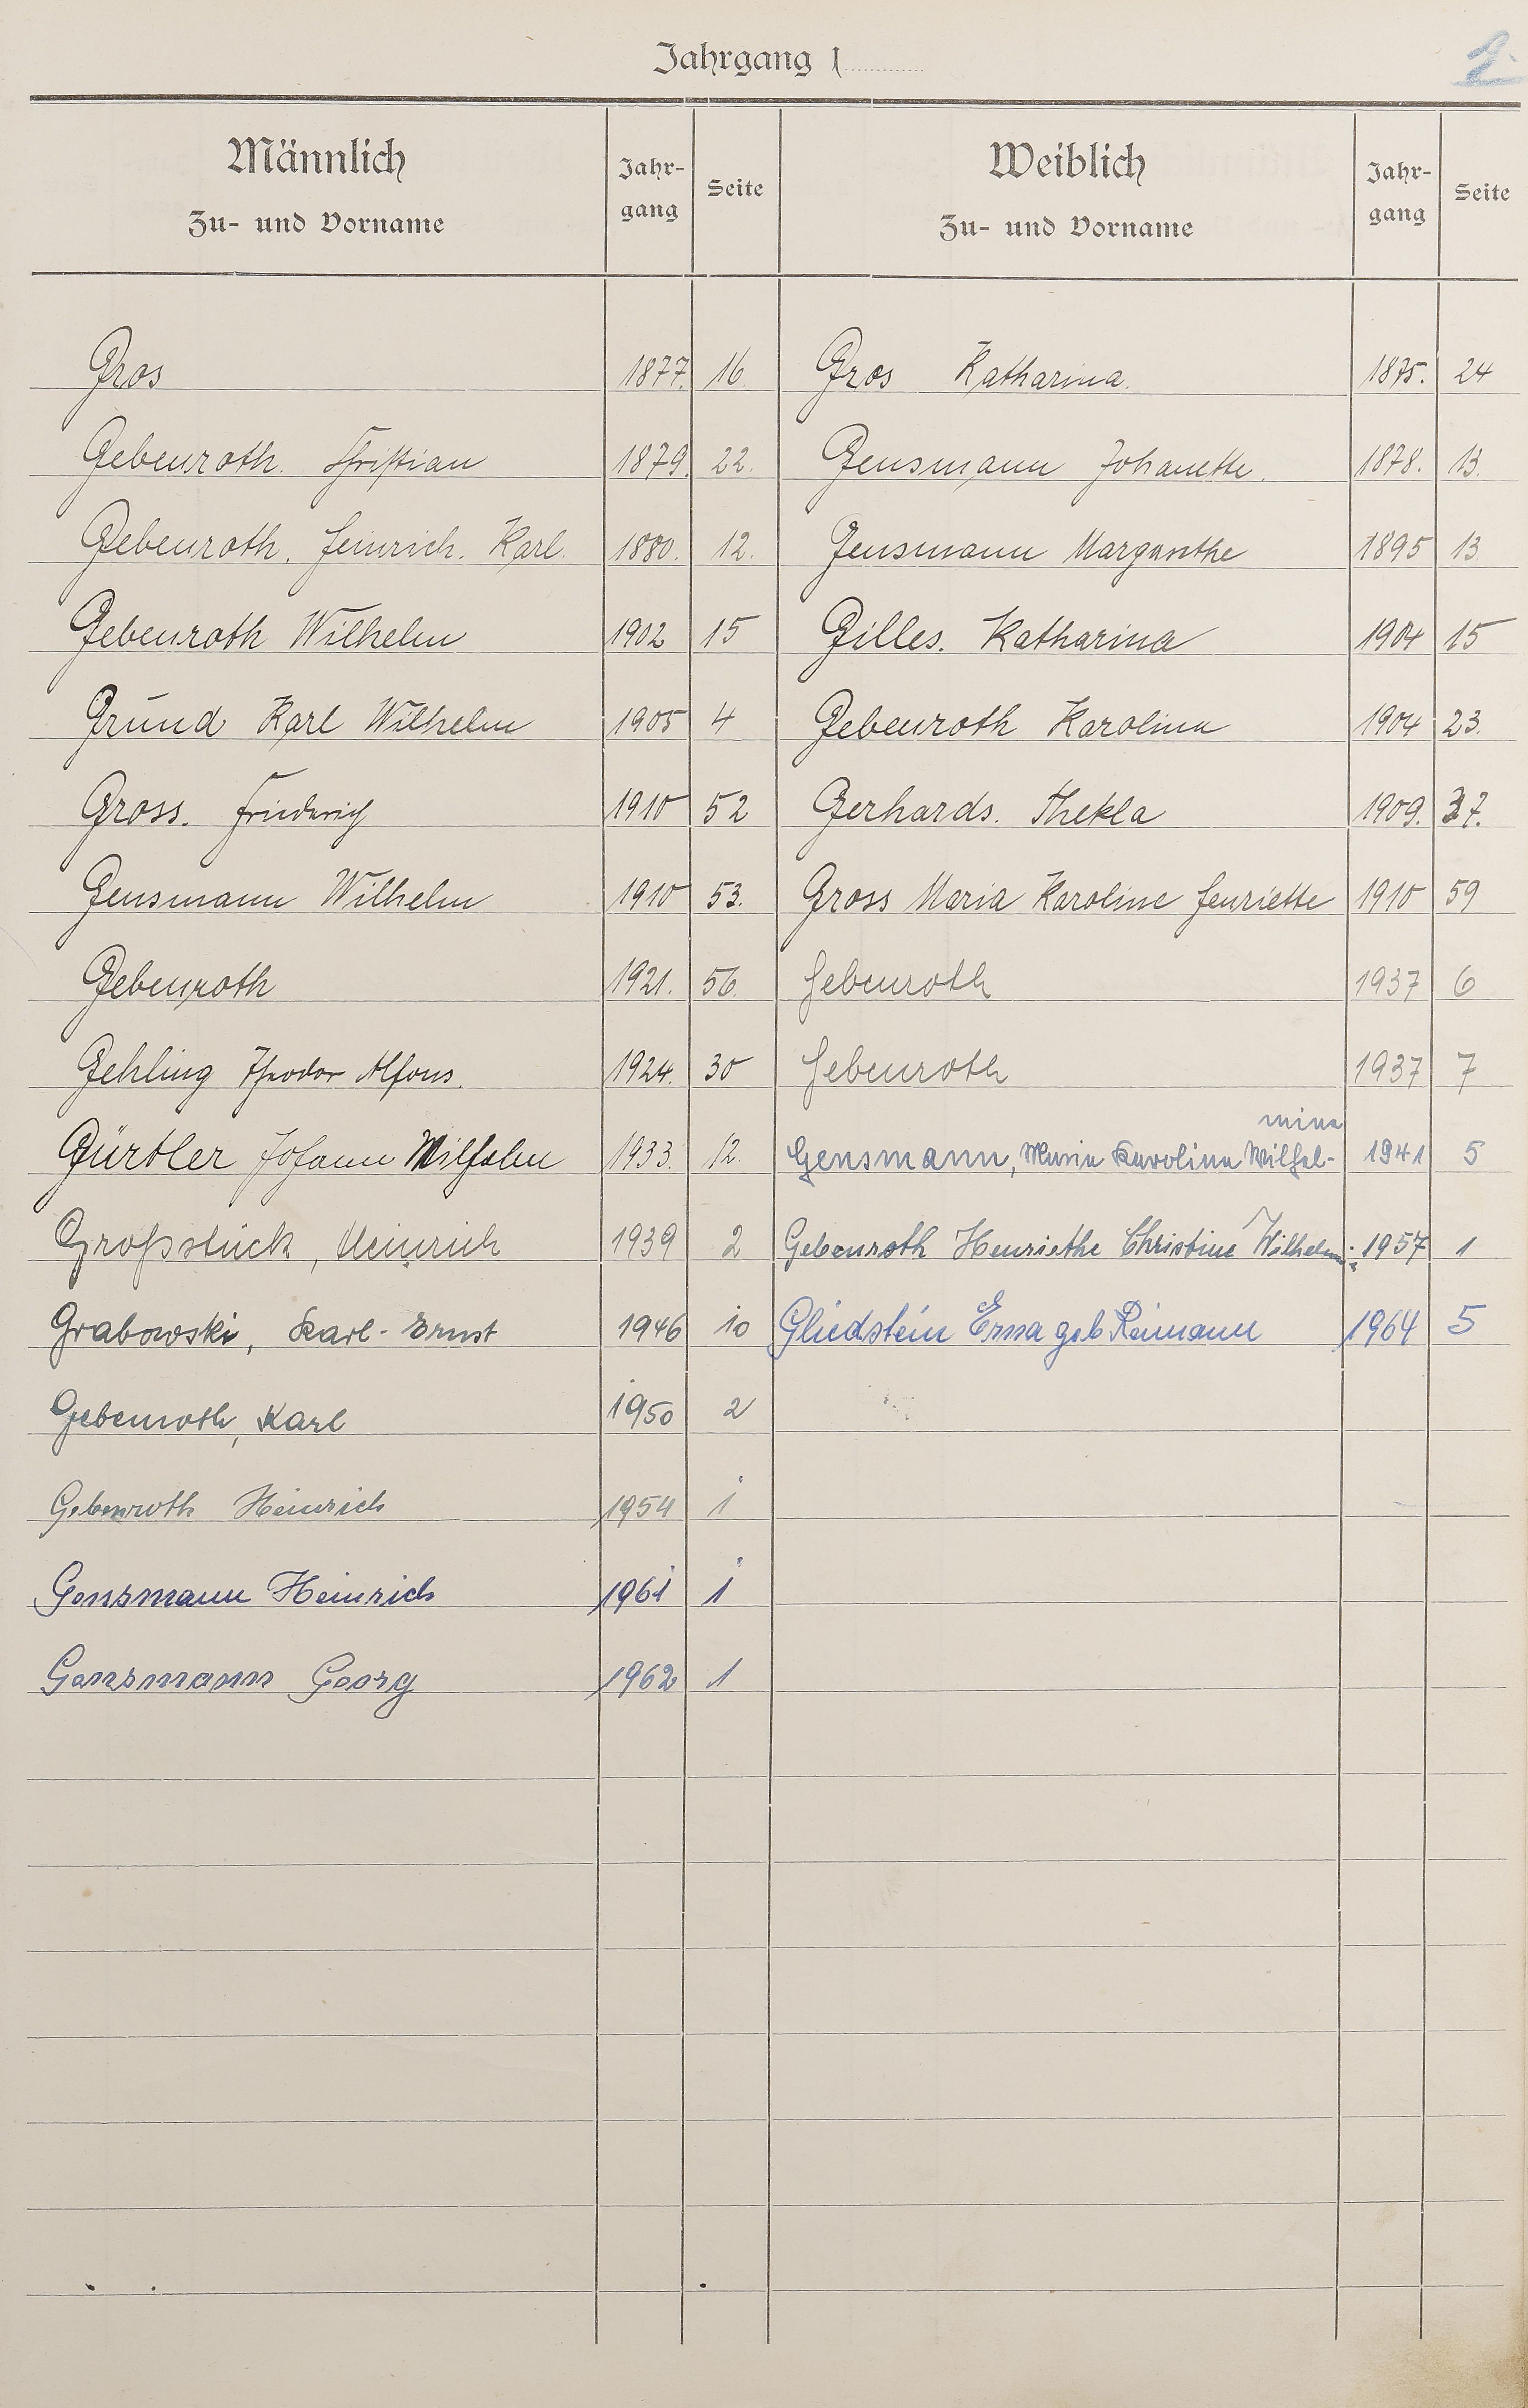 Jahrgang 1
2.
Männlich Jahr- Seite Weiblich Jahr- Seite
Zu- und Vorname gang Zu- und Vorname gang
Gros 1877. 16. Gros Katharina. 1875. 24
Gebenroth. Christian 1879. 22. Gensmann Johanette. 1878. 13.
Gebenroth. Heinrich. Karl. 1880. 12. Gensmann Margarethe 1895 13.
Gebenroth Wilhelm 1902 15 Gilles. Katharina 1904 15
Grund Karl Wilhelm 1905 4 Gebenroth Karolina 1904 23.
Gross. Friederich 1910 52 Gerhards. Thekla 1909. 37.
Gensmann Wilhelm 1910 53. Gross Maria Karoline Henriette 1910 59
Gebenroth 1921. 56. Gebenroth 1937 6
Gehling Theodor Alfons. 1924. 30 Gebenroth 1937 7
mina
Gürtler Johann Wilhelm 1933. 12. Gensmann, Maria Karolina Wilhel- 1941 5
Großstück, Heinrich 1939 2 Gebenroth Henriethe Christine Wilhelmine 1957 1
Grabowski, Karl-Ernst 1946 10 Gliedstein Erna geb Reimann 1964 5
Gebenroth, Karl 1950 2
Gebenroth Heinrich 1954 1
Gensmann Heinrich 1961 1
Gensmann Georg 1962 1